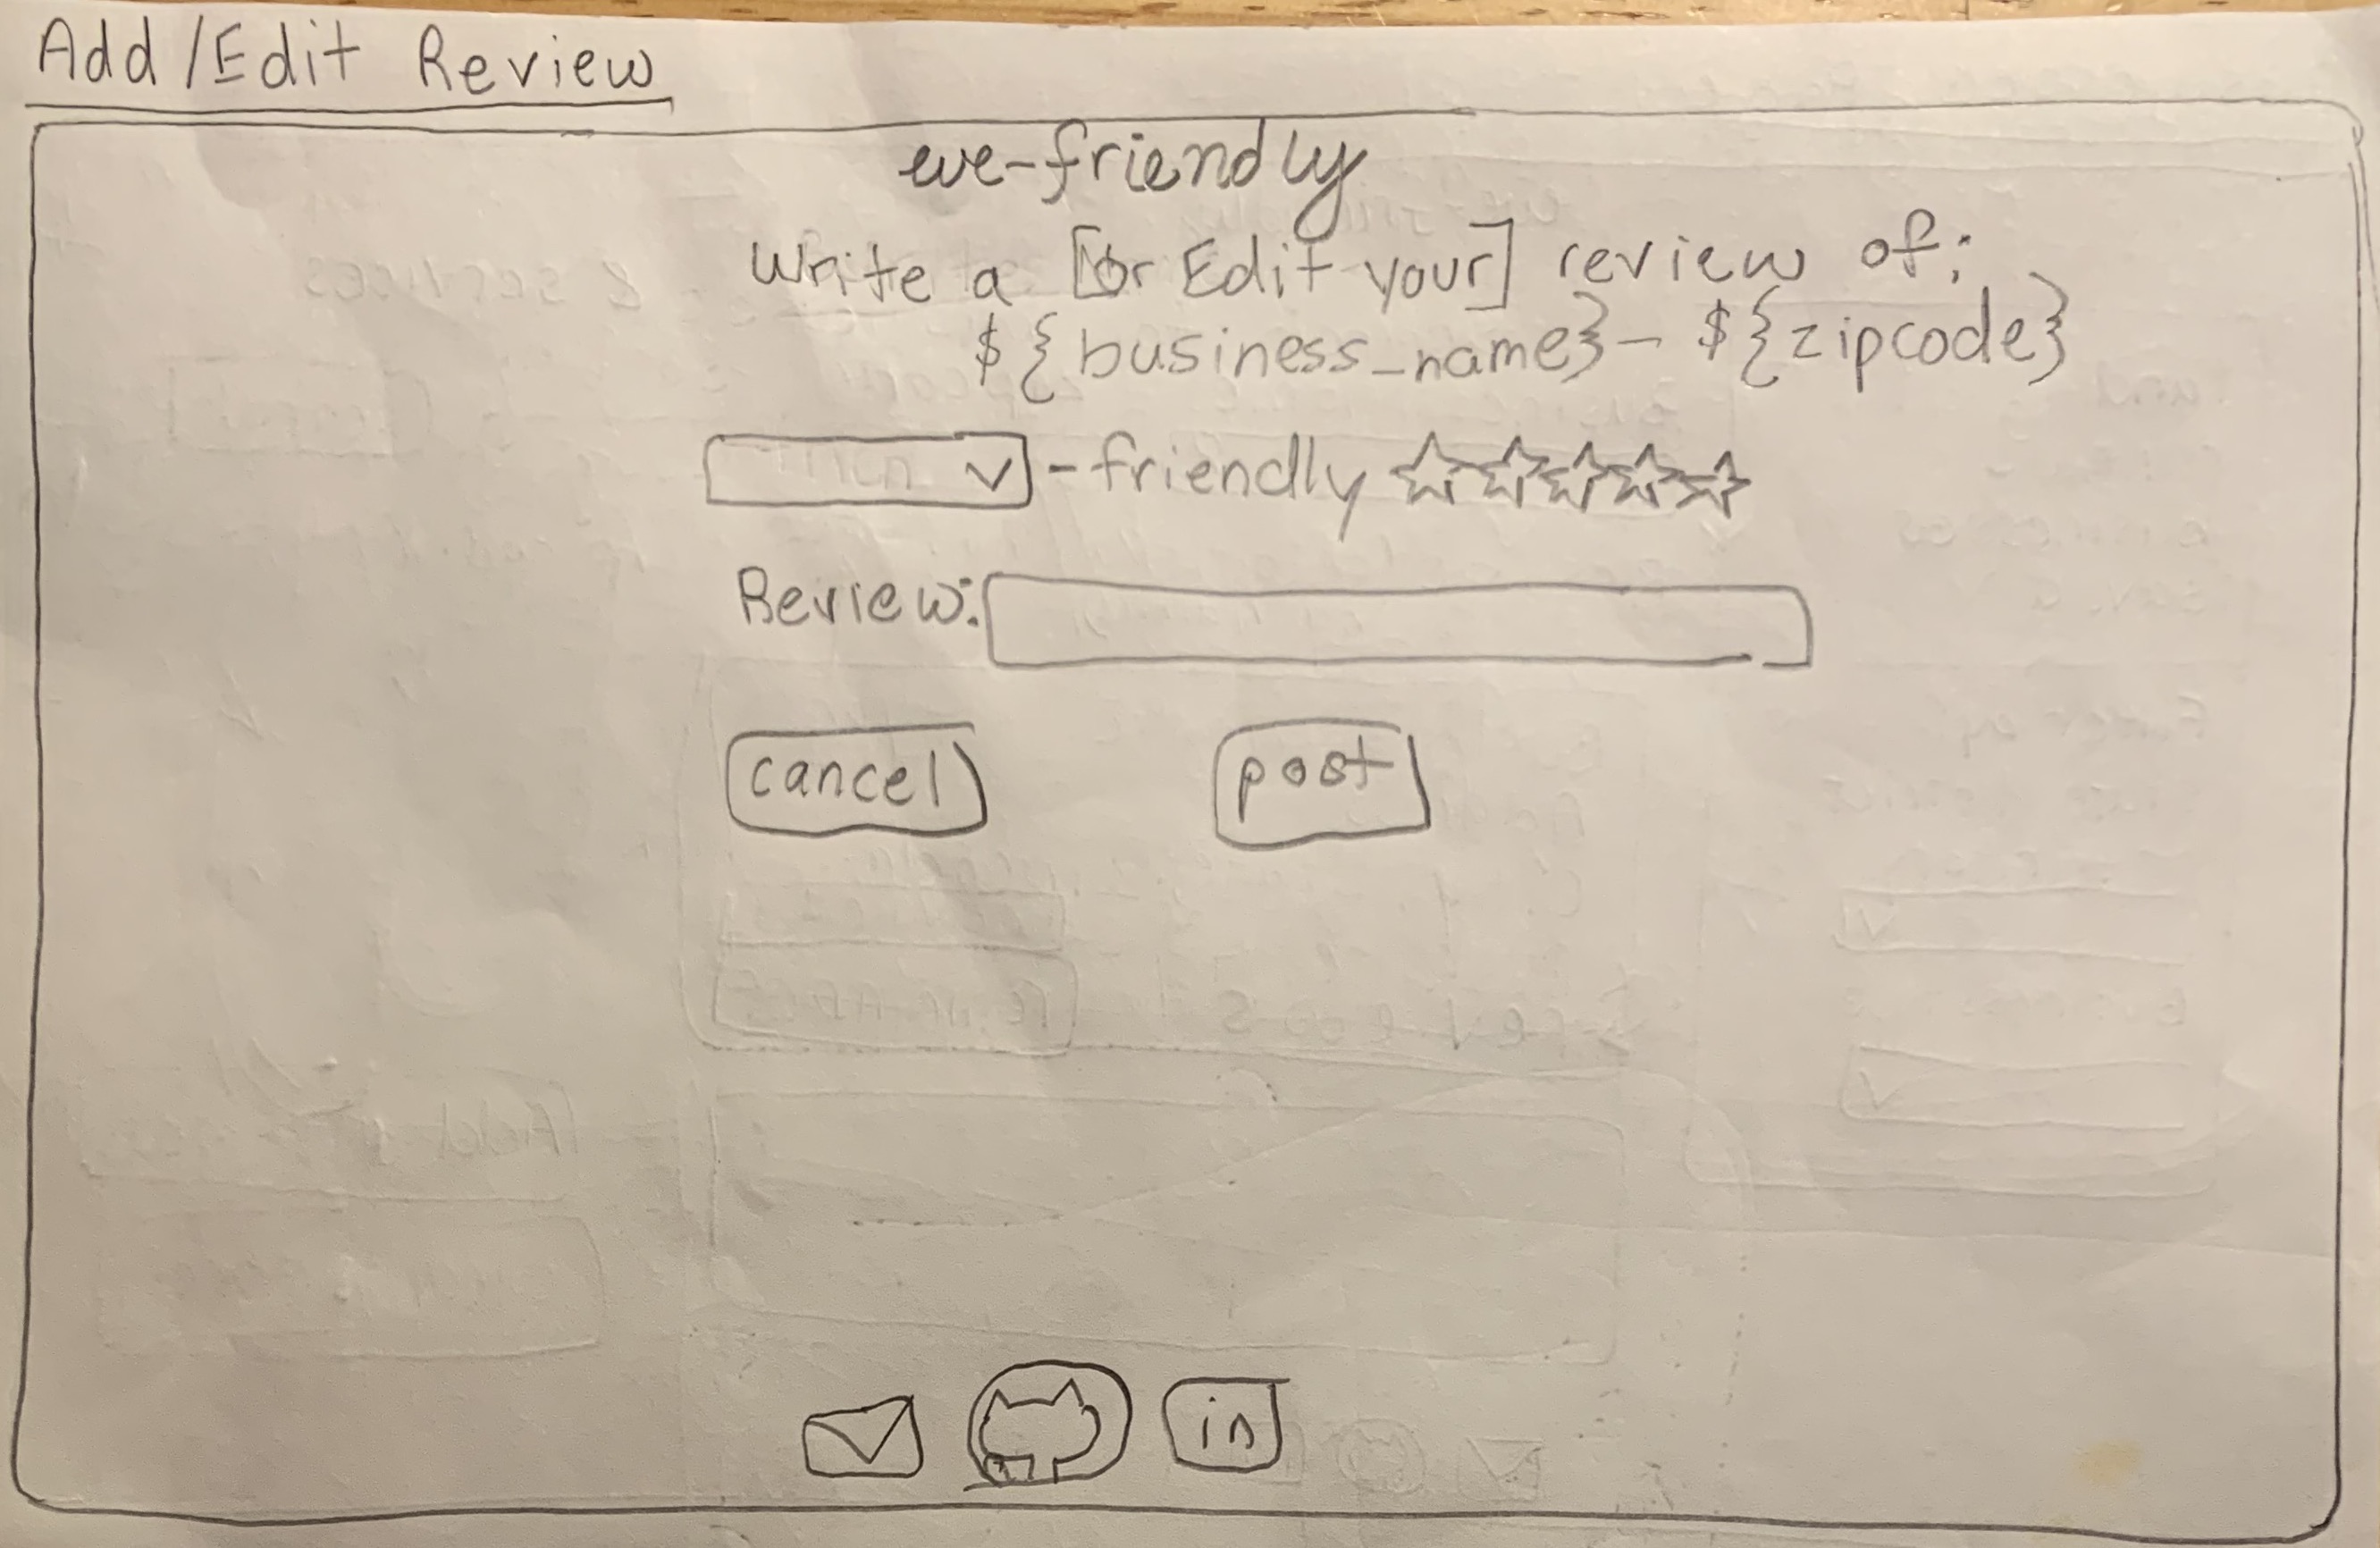 Add/Edit Review
eve-friendly
Write a [or Edit your] review of:
${business_name} - ${zipcode}
-friendly
Review:
cancel post
in